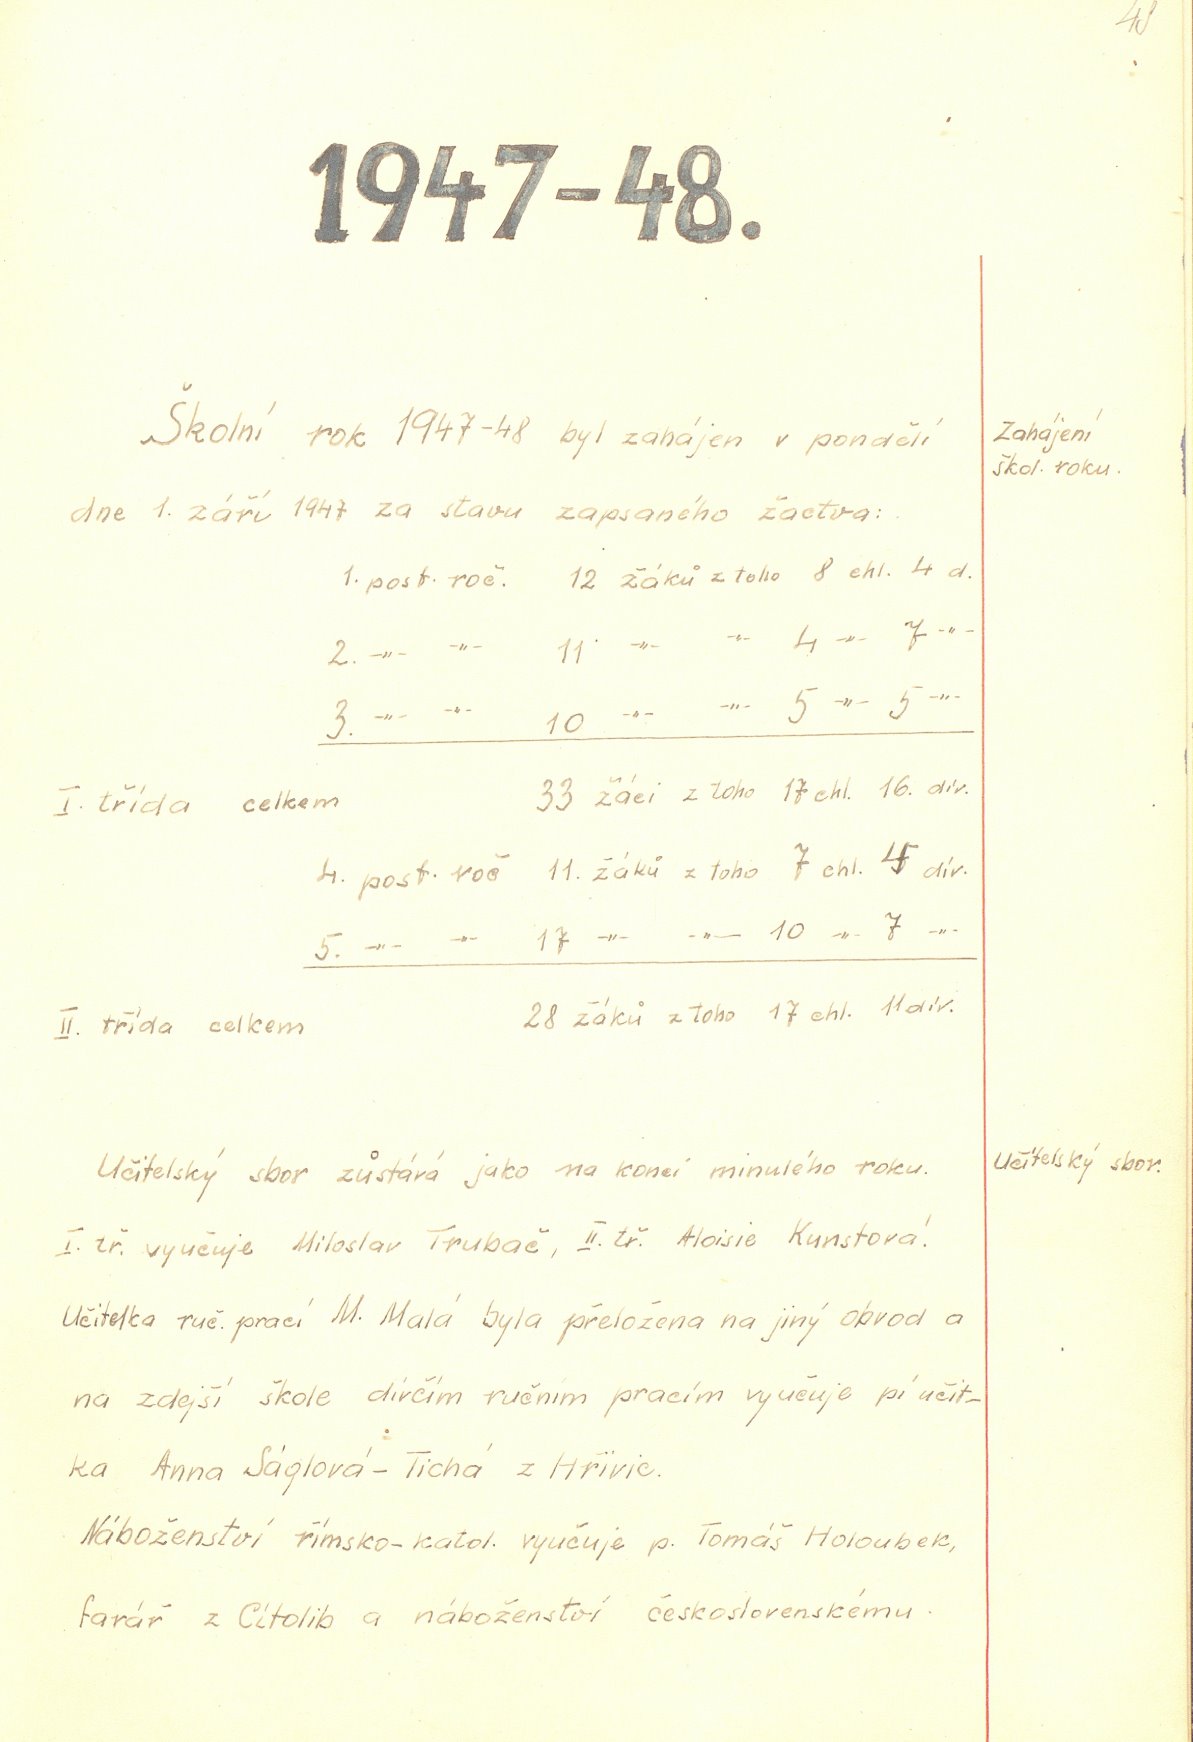 48
1947-48.
Školní rok 1947-48 byl zahájen v pondělí
Zahájení
škol. roku.
dne 1. září 1947 za stavu zapsaného žactva:
1. post. roč. 12 žáků z toho 8 chl. 4 d.
2. -"- -"- 11 -"- -"- 4 -"- 7 -"-
3. -"- -"- 10 -"- -"- 5 -"- 5 -"-
I. třída celkem 33 žáci z toho 17 chl. 16. dív.
4. post. roč 11. žáků z toho 7 chl. 4 dív.
5. -"- -"- 17 -"- -"- 10 -"- 7 -"-
II. třída celkem 28 žáků z toho 17 chl. 11 dív.
Učitelský sbor zůstává jako na konci minulého roku.
Učitelský sbor.
I. tř. vyučuje Miloslav Trubač, II. tř. Aloisie Kunstová.
Učitelka ruč. prací M. Malá byla přeložena na jiný obvod a
na zdejší škole dívčím ručním pracím vyučuje pí učit-
ka Anna Ságlová - Tichá z Hřivic.
Náboženství římsko-katol. vyučuje p. Tomáš Holoubek,
farář z Cítolib a náboženství československému.